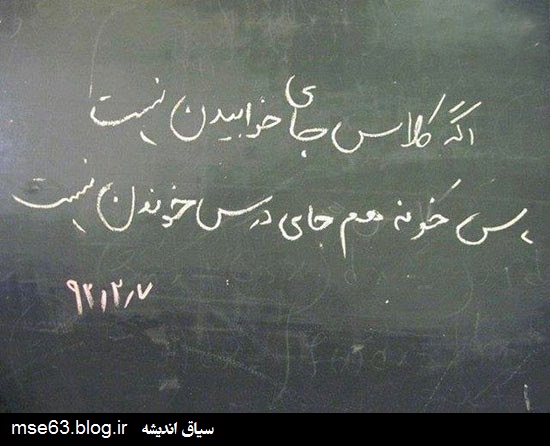 اگه کلاس جای خوابیدن نیست
پس خونه هم جای درس خوندن نیست
۹۲٫۲٫۷
سیاق اندیشه mse63.blog.ir